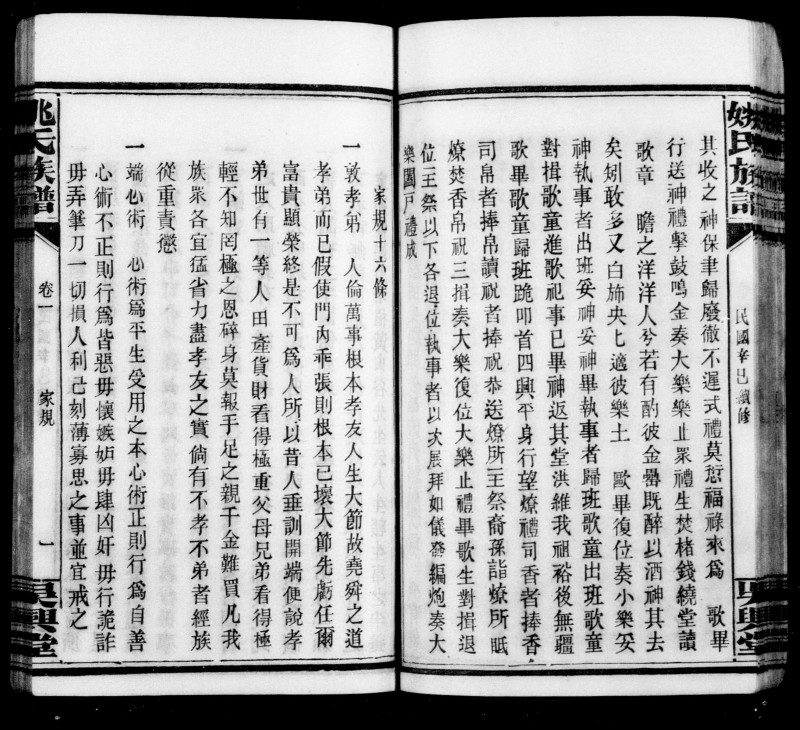 姚氏族譜
民國辛巳續修
吳興堂
其收之神保聿歸廢徹不遲式禮莫愆福祿來爲　歌畢
行送神禮擊鼓鳴金奏大樂樂止衆禮生焚楮錢繞堂讀
歌章　瞻之洋洋人兮若有酌彼金罍既醉以酒神其去
矣矧敢多又白斾央匕適彼樂土　歐畢復位奏小樂妥
神執事者出班妥神妥神畢執事者歸班歌童出班歌童
對揖歌童進歌祀事已畢神返其堂洪維我祖裕後無疆
歌畢歌童歸班跪叩首四興平身行望燎禮司香者捧香
司帛者捧帛讀祝者捧祝恭送燎所主祭裔孫詣燎所眂
燎焚香帛祝三揖奏大樂復位大樂止禮畢歌生對揖退
位主祭以下各退位執事者以次展拜如儀發編炮奏大
樂闔戸禮成
家規十六條
一敦孝弟　人倫萬事根本孝友人生大節故堯舜之道
孝弟而已假使門內乖張則根本已壞大節先虧任爾
富貴顯榮終是不可爲人所以昔人垂訓開端便說孝
弟世有一等人田產貨財看得極重父母兄弟看得極
輕不知罔極之恩碎身莫報手足之親千金難買凡我
族衆各宜猛省力盡孝友之實倘有不孝不弟者經族
從重責懲
一端心術　心術爲平生受用之本心術正則行爲自善
心術不正則行爲皆惡毋懷嫉妬毋肆凶奸毋行詭詐
毋弄筆刀一切損人利己刻薄寡思之事並宜戒之
姚氏族譜
卷一
家規
一
吳興堂